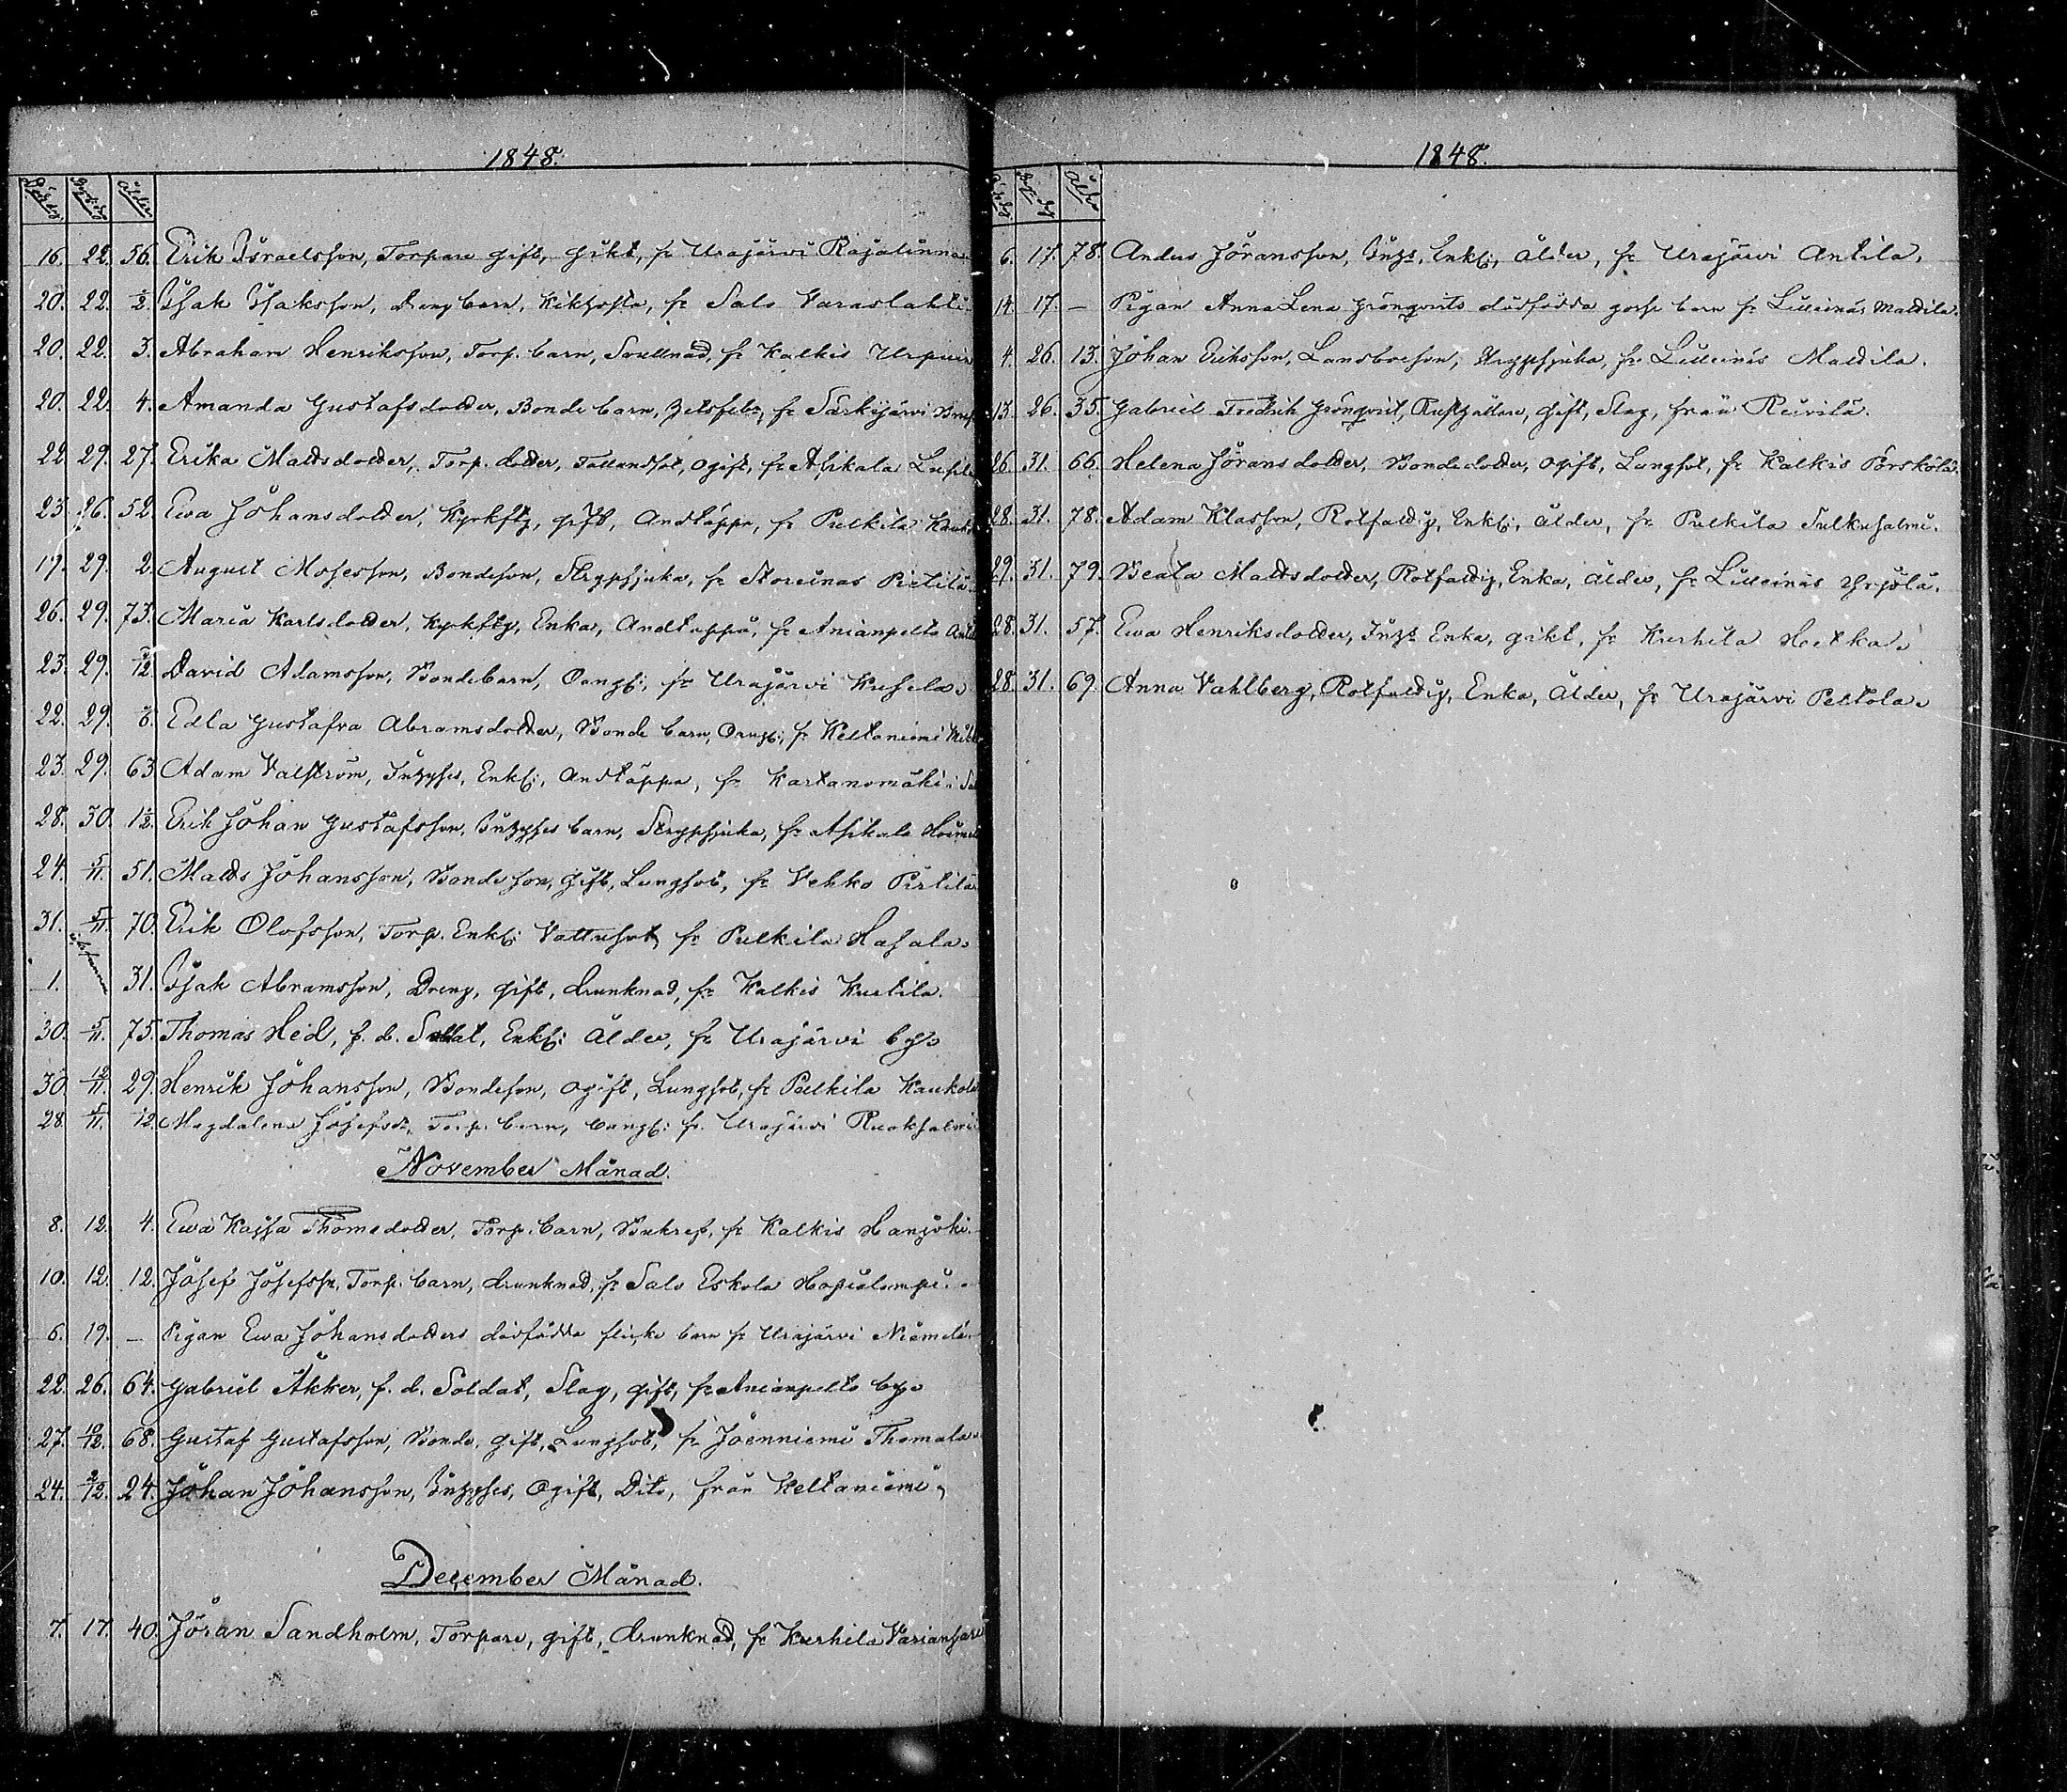 1848.
16. 22. 56. Erik Israelsson, Torpare gift, gikt, fr Urajärvi Rajalinna
20. 22. ½. Isak Isaksson, Dreng barn, Kikhosta, fr Salo Varaslahti
20. 22. 3. Abraham Henriksson, Torp. barn, Svullnad, fr Kalkis Urpui
20. 22. 4. Amanda Gustafsdotter, Bonde barn, fr Särkijärvi
22. 29. 27. Erika Mattsdotter, Torp. dotter, ogift, fr Asikala
23. 26. 52. Ewa Johansdotter, Kyrkftg, gift, Andtäppa, fr Pulkila
19. 29. 2. August Mosesson, Bondeson, Strypsjuka, fr Storeinäs Pietilä.
26. 29. 73. Maria Karlsdotter, Kyrkftg, Enka, Andtäppa, fr Anianpelto
23. 29. David Adamsson, Bondebarn, fr Urajärvi Kusela.
22. 29. 6. Edla Gustafva Abramsdotter, Bonde barn, fr Keltaniemi
23. 29. 63 Adam Valström, Inhyses, Enkl: Andtäppa, fr Kartanomäki
28. 30. 1½. Erik Johan Gustafsson, Inhyses barn, Strypsjuka, fr Asikala
24. 5/11. 51. Matts Johansson, Bondeson, gift, Lungsot, fr Vehko Pietilä
31. 5/11. 70. Erik Olofsson, Torp. Enkl: Vattusot, fr Pulkila Hasala.
1. 31. Isak Abramsson, Dreng, gift, drunknad, fr Kalkis Kurtila.
30. 5/11. 75. Thomas Heid, f. d. Soldat, Enkl: Ålder, fr Urajärvi by.
30. 12/11. 29. Henrik Johansson, Bondeson, ogift, Lungsot, fr Pulkila Kaukola
28. 5/11. 12. Magdalena Josefsdr, Torp. barn, fr. Urajärvi Ruokhalmi
November Månad.
8. 12. 4. Ewa Kajsa Thomsdotter, Torp. barn, fr Kalkis Hanjoki.
10. 12. 12. Josef Josefsson, Torp. barn, drunknad, fr Salo Eskola Hopialampi.
6. 19. — Pigan Ewa Johansdotters dödfödda flicke barn fr Urajärvi Niemelä.
22. 26. 64. Gabriel Åkker, f. d. Soldat, Slag, gift, fr Anianpelto by.
27. 10/12. 68. Gustaf Gustafsson, Bonde, gift, Lungsot, fr Joenniemi Thomala.
24. 2/12. 24. Johan Johansson, Inhyses, Ogift, Dito, från Keltaniemi,
December Månad.
7. 17. 40. Jöran Sandholm, Torpare, gift, drunknad, fr Kurhila
1848.
6. 17. 78. Anders Jöransson, Inhs, Enkl: Ålder, fr Urajärvi Antila.
14. 17. — Pigan Anna Lena Grönqvists dödfödda gosse barn fr Lilleinäs Mattila.
4. 26. 13. Johan Eriksson, Landboeson, Strypsjuka, fr Lilleinäs Mattila.
13. 26. 35. Gabriel Fredrik Grönqvist, Rusthållare, Gift, Slag, från Riivilä.
26. 31. 66. Helena Jöransdotter, Bondedotter, ogift, Lungsot, fr Kalkis Pörskölä.
28. 31. 78. Adam Klasson, Rotfattig, Enkl: Ålder, fr Pulkila
29. 31. 79. Beata Mattsdotter, Rotfattig, Enka, Ålder, fr Lilleinäs Yrjölä.
28. 31. 57. Ewa Henriksdotter, Inhs Enka, gikt, fr Kurhila Heikka.
28. 31. 69. Anna Vahlberg, Rotfattig, Enka, Ålder, fr Urajärvi Peltola.